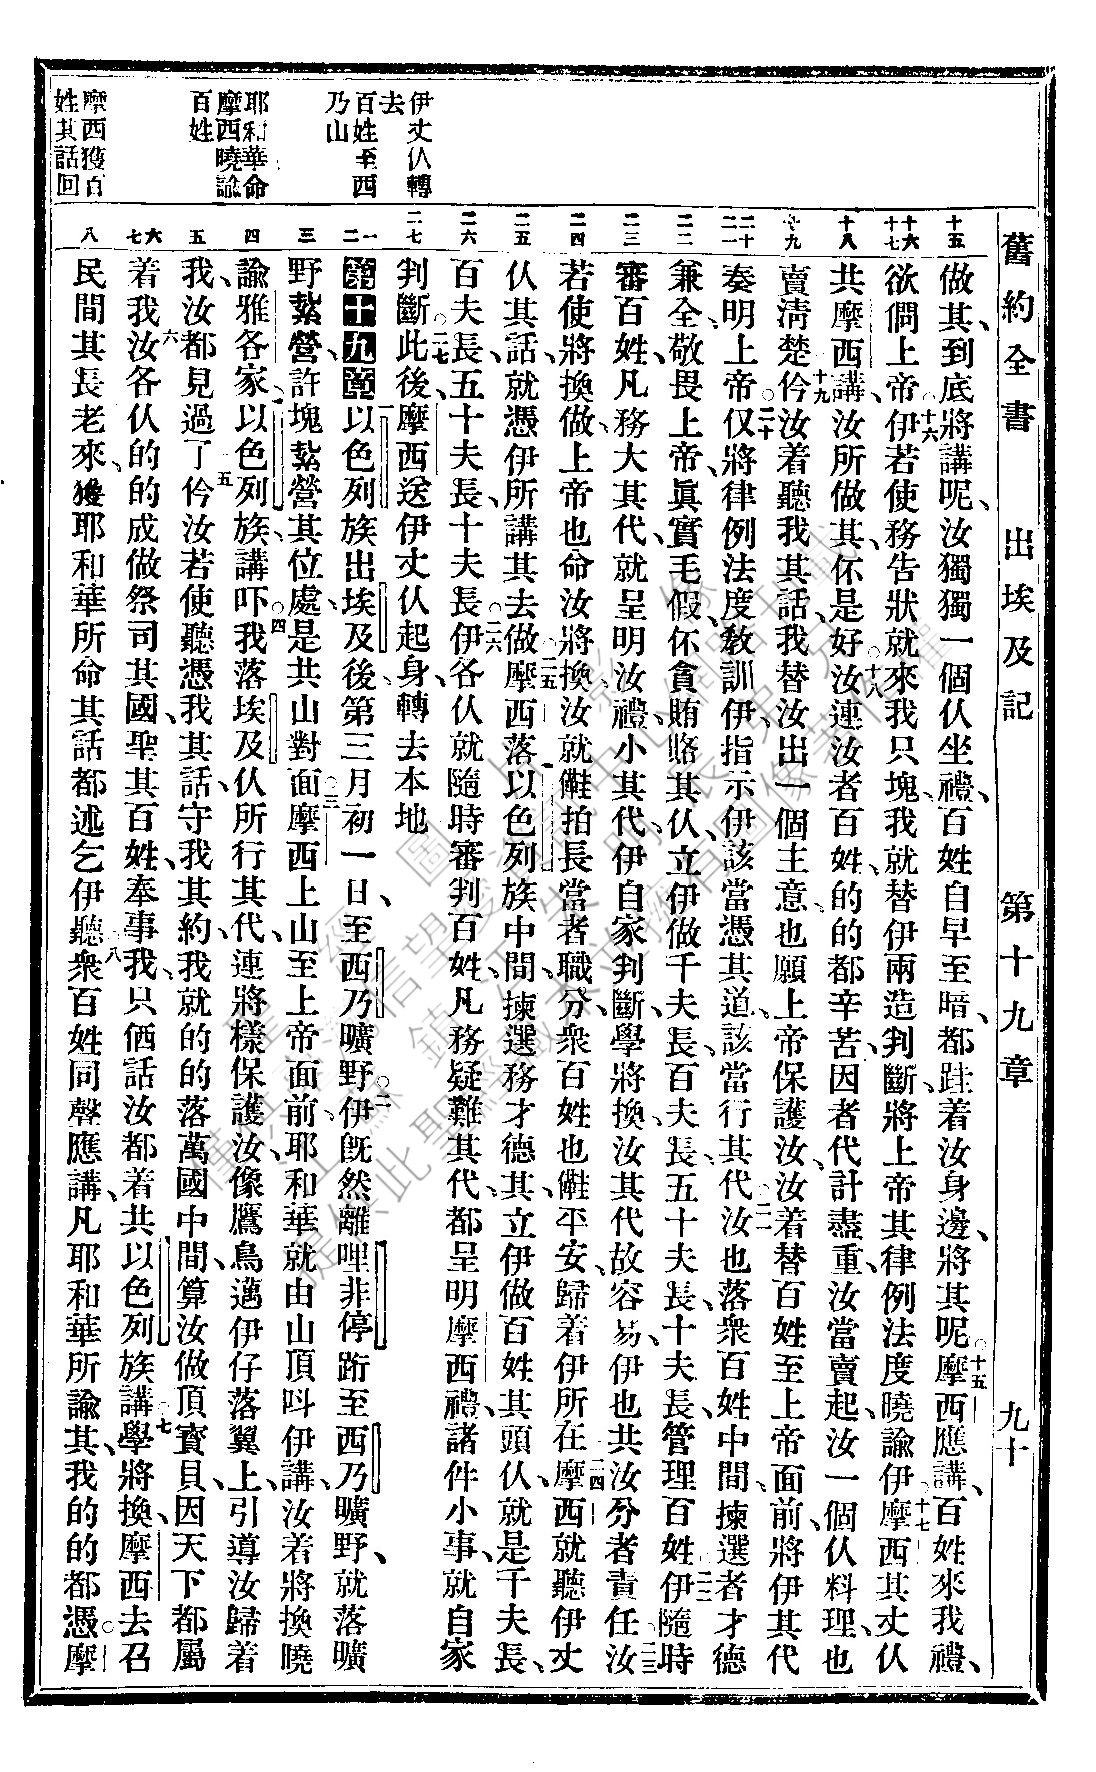 舊約全書 出埃及記 第十九章 九十
伊丈仈轉去
百姓至西乃山
耶和華命摩西曉諭百姓
摩西獲百姓其話回
十五 十六 十七 十八 十九 二十 二一 二二 二三 二四 二五 二六 二七 一 二 三 四 五 六 七 八
做其、到底將講呢、汝獨獨一個仈坐禮、百姓自早至暗、都跬着汝身邊、將其呢。十五摩西應講、百姓來我禮、
欲倜上帝。十六伊若使務告狀就來我只塊、我就替伊兩造判斷、將上帝其律例法度曉諭伊。十七摩西其丈仈
共摩西講、汝所做其、伓是好。十八汝連汝者百姓的的都辛苦、因者代計盡重、汝當賣起、汝一個仈料理也
賣淸楚。十九仱汝着聽我其話、我替汝出一個主意、也願上帝保護汝、汝着替百姓至上帝面前、將伊其代
奏明上帝。二十仅將律例法度教訓伊、指示伊該當憑其道、該當行其代。二一汝也落衆百姓中間、揀選者才德
兼全、敬畏上帝、眞實毛假、伓貪賄賂其仈、立伊做千夫長、百夫長、五十夫長、十夫長、管理百姓。二二伊隨時
審百姓、凡務大其代、就呈明汝禮、小其代、伊自家判斷、學將換汝其代故容易、伊也共汝分者責任。二三汝
若使將換做、上帝也命汝將換、汝就𠍁拍長當者職分、衆百姓也𠍁平安、歸着伊所在。二四摩西就聽伊丈
仈其話、就憑伊所講其去做。二五摩西落以色列族中間、揀選務才德其、立伊做百姓其頭仈、就是千夫長、
百夫長、五十夫長、十夫長。二六伊各仈就隨時審判百姓、凡務疑難其代、都呈明摩西禮、諸件小事、就自家
判斷。二七此後摩西送伊丈仈起身、轉去本地
第十九章 以色列族出埃及後、第三月初一日、至西乃曠野。二伊旣然離哩非停、跀至西乃曠野、就落曠
野紮營、許塊紮營其位處、是共山對面。三摩西上山至上帝面前、耶和華就由山頂呌伊講、汝着將換曉
諭雅各家、以色列族、講吓。四我落埃及仈所行其代、連將樣保護汝、像鷹鳥邁伊仔落翼上、引導汝歸着
我、汝都見過了。五仱汝若使聽憑我其話、守我其約、我就的的落萬國中間、算汝做頂寶貝、因天下都屬
着我。六汝各仈的的成做祭司其國、聖其百姓、奉事我、只価話汝都着共以色列族講。七學將換、摩西去召
民間其長老來、獲耶和華所命其話都述乞伊聽。八衆百姓同聲應講、凡耶和華所諭其、我的的都憑。摩